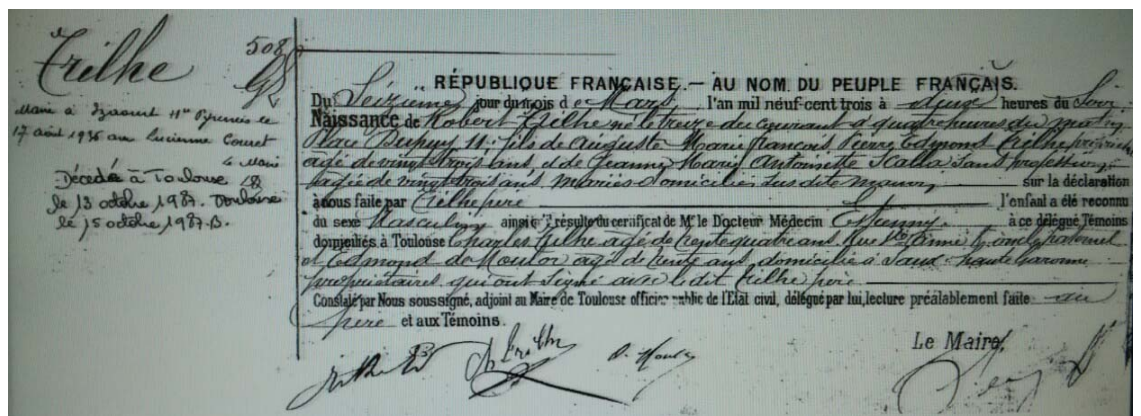 508
Trilhe
Marié à Izaourt Htes Pyrénées le
17 août 1936 avec Lucienne Comet
le Maire
Décédé à Toulouse
le 13 octobre 1987. Toulouse
le 15 octobre 1987.
RÉPUBLIQUE FRANÇAISE. — AU NOM DU PEUPLE FRANÇAIS.
Du Seizième jour du mois de Mars, l'an mil neuf cent trois à deux heures du Soir
Naissance de Robert Trilhe né le treize du courant à quatre heures du matin
Place Dupuy 11; fils de Auguste Marie François Pierre Edmond Trilhe propriétaire
agé de vingt trois ans, et de Jeanne Marie Antoinette Scalla sans profession
agée de vingt trois ans mariés domiciliés susdite maison sur la déclaration
à nous faite par Trilhe père l'enfant a été reconnu
du sexe Masculin ainsi qu'il résulte du certificat de Mr le Docteur Médecin à ce délégué Témoins
domiciliés à Toulouse Charles Trilhe agé de trente quatre ans, Rue Ste Anne oncle paternel
et Edmond de agé de trente ans, domicilié à haute Garonne
propriétaires qui ont signé avec le dit Trilhe père
Constaté par Nous soussigné, adjoint au Maire de Toulouse officier public de l'Etat civil, délégué par lui, lecture préalablement faite au
père et aux Témoins.
Le Maire,